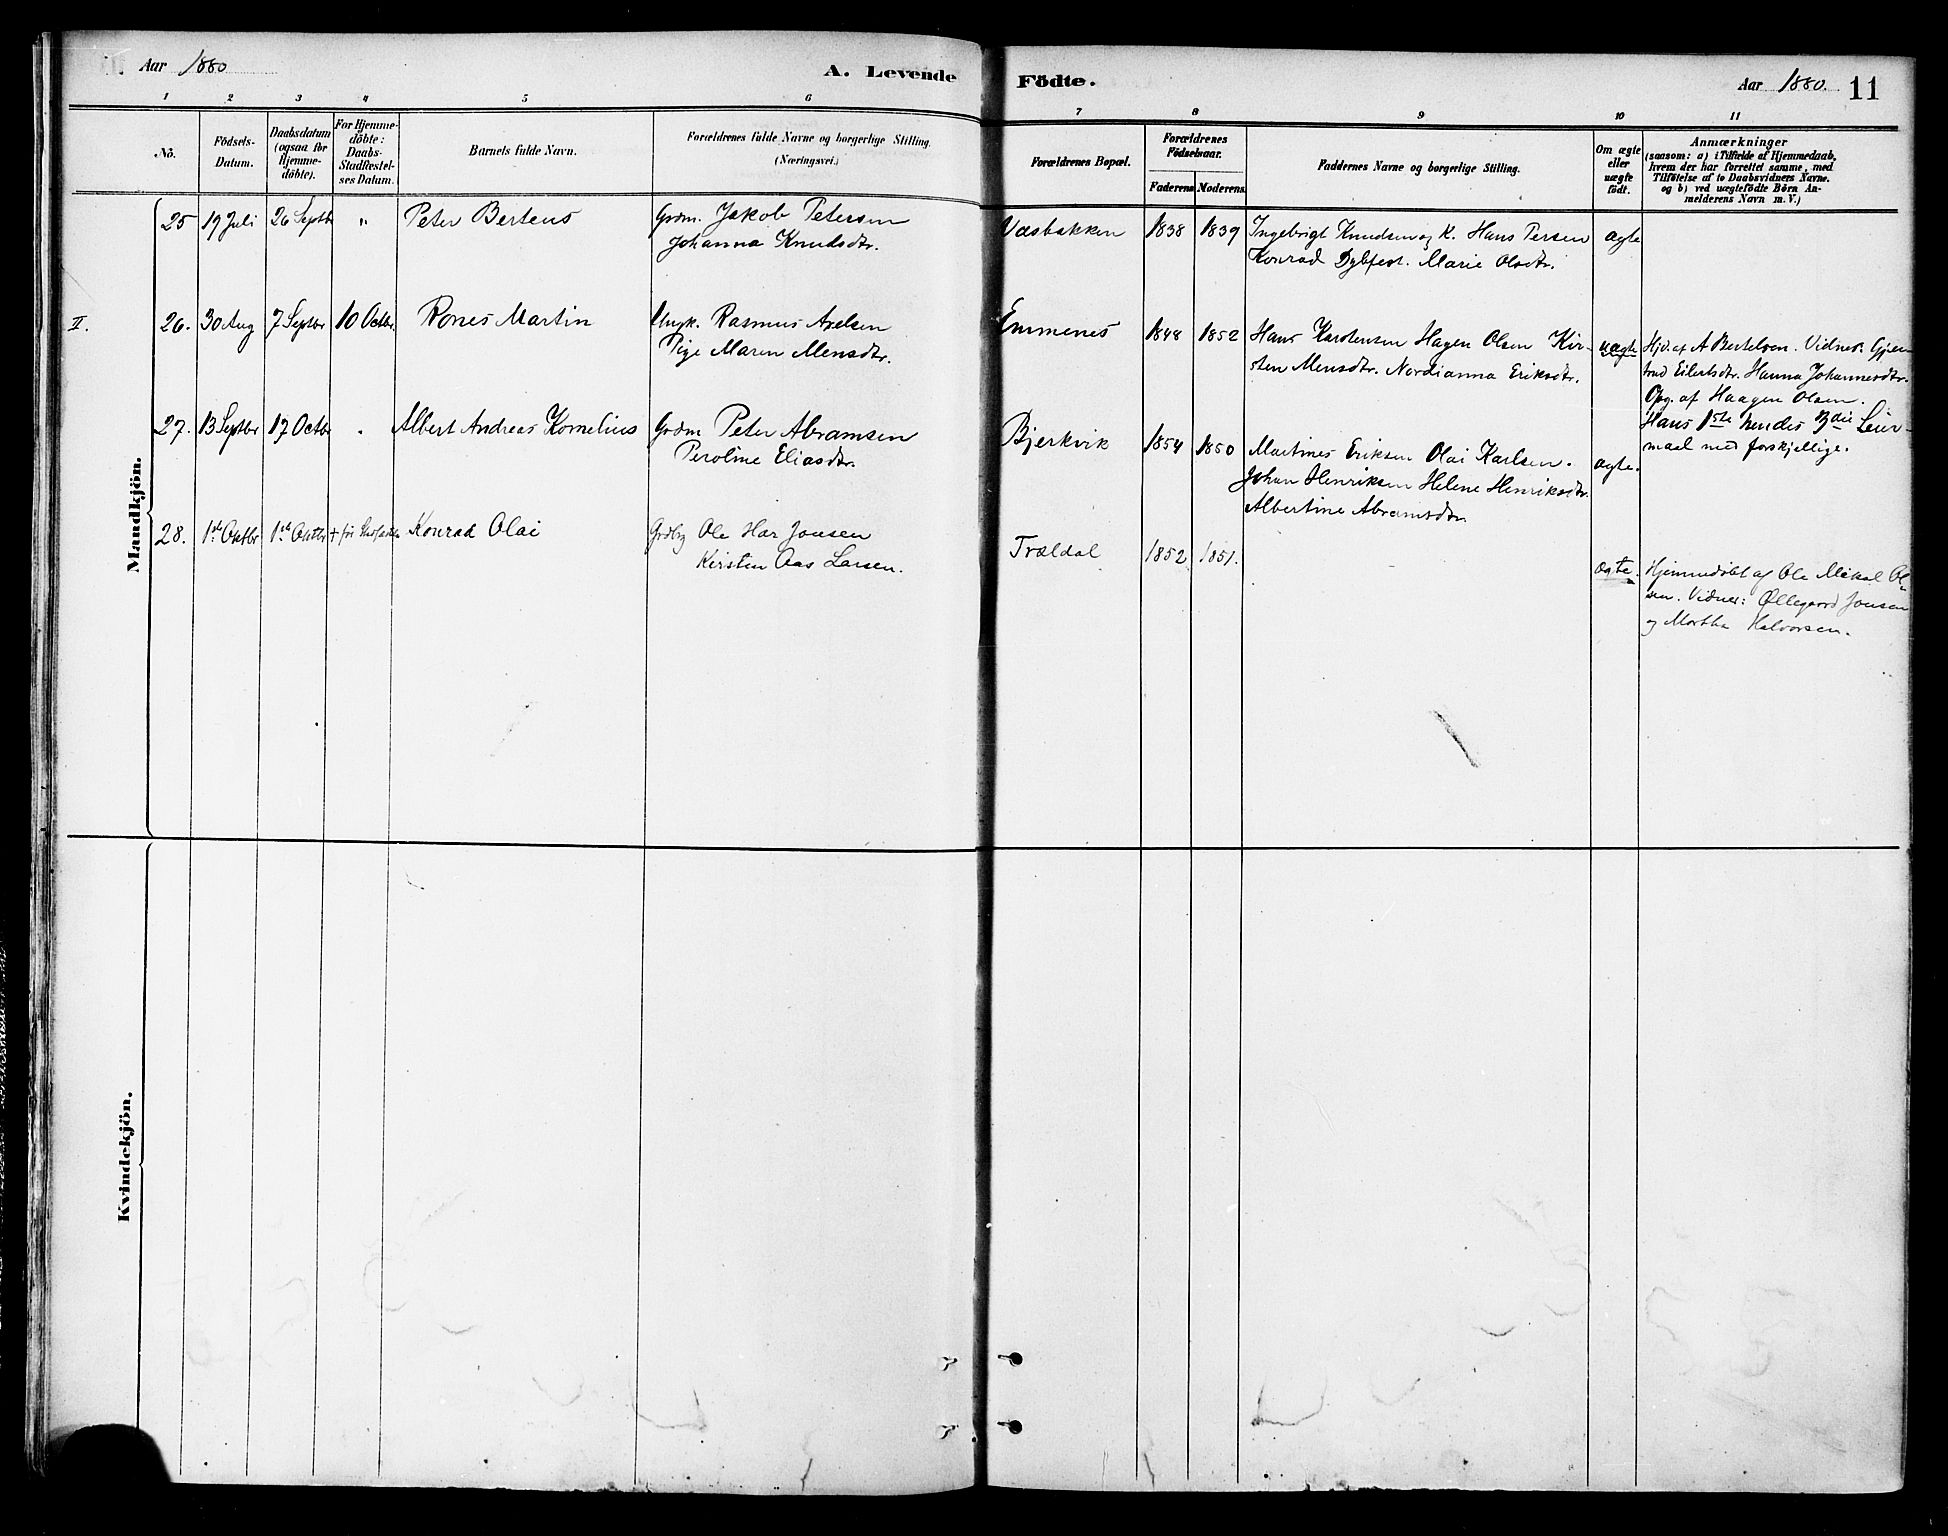 Aar 1880
A. Levende
Födte.
Aar 1880.
11
1 2 3 4 5 6 7 8 9 10 11
No.
Födsels-
Datum.
Daabsdatum
(ogsaa for
Hjemme-
döbte).
For Hjemme-
döbte:
Daabs-
Stadfæstel-
ses Datum.
Barnets fulde Navn.
Forældrenes fulde Navne og borgerlige Stilling.
(Næringsvei.)
Forældrenes Bopæl.
Forældrenes
Födselsaar.
Faderens Moderens.
Faddernes Navne og borgerlige Stilling.
Om ægte
eller
uægte
födt.
Anmærkninger
(saasom: a) i Tilfælde af Hjemmedaab,
hvem der har forrettet samme, med
Tilföielse af to Daabsvidners Navne.
og b) ved uægtefödte Börn An-
melderens Navn m. V.)
Mandkjön.
25 19 Juli 26 Septbr " Peter Bertens Grdm. Jakob Petersen
Johanna Knudsdtr.
Væsbakken 1838 1839 Ingebrigt Knudsen og K. Hans Persen
Konrad Dybfest. Marie Olsdtr.
ægte
II.
26. 30 Aug 7 Septbr 10 Octbr. Rones Martin Ungk. Rasmus Axelsen
Pige Maren Mensdtr.
Emmenes 1848 1852 Hans Karstensen Hagen Olsen Kir-
sten Mensdtr. Nordianna Eriksdtr.
uægte
Hjd. af A Bertelsen. Vidner: Gjer-
trud Eilertsdtr. Hanna Johannesdtr.
Opg. af Haagen Olsen.
Hans 1ste hendes 3die Leier-
maal med forskjellige.
27. 13 Septbr 17 Octbr " Albert Andreas Kornelius Grdm Peter Abramsen
Peroline Eliasdtr.
Bjerkvik 1854 1850 Martines Eriksen Olai Karlsen.
Johan Henriksen Helene Henriksdtr.
Albertine Abramsdtr.
ægte.
28. 1st Oktbr 1st Oktbr + før Konrad Olai Ole Har Jonsen
Kirsten Aas Larsen.
Trældal 1852 1851.
ægte.
Hjemmedøbt af Ole Mikal Ol-
sen. Vidner: Øllegaard Jonsen
og Martha Halvorsen.
Kvindekjön.